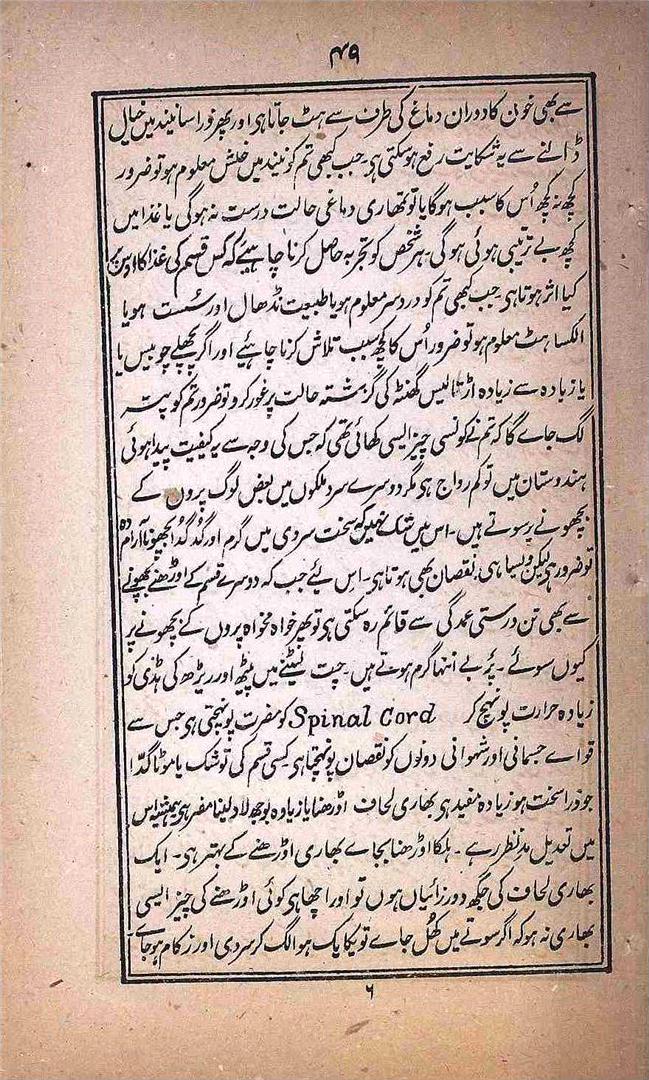 ۴۹
سے بھی خون کا دوران دماغ کی طرف سے ہٹ جاتا ہی اور پھر ذرا سا نیند میں خیال
ڈالنے سے یہ شکایت رفع ہو سکتی ہی۔ جب کبھی تم کو نیند میں خلش معلوم ہو تو ضرور
کچھ نہ کچھ اُس کا سبب ہوگا یا تو تمھاری دماغی حالت درست نہ ہوگی یا غذا میں
کچھ بے ترتیبی ہوئی ہوگی۔ ہر شخص کو تجربہ حاصل کرنا چاہیئے کہ کس قسم کی غذا کا اوس پر
کیا اثر ہوتا ہی۔ جب کبھی تم کو دردسر معلوم ہو یا طبیعت نڈھال اور سُست ہو یا
الکساہٹ معلوم ہو تو ضرور اُس کا کچھ سبب تلاش کرنا چاہئیے اور اگر پچھلے چوبیس یا
یا زیادہ سے زیادہ اڑتالیس گھنٹہ کی گزشتہ حالت پر غور کرو تو ضرور تم کو پتہ
لگ جاے گا کہ تم نے کونسی چیز ایسی کھائی تھی کہ جس کی وجہ سے یہ کیفیت پیدا ہوئی
ہندوستان میں تو کم رواج ہی مگر دوسرے سرد ملکوں میں بعض لوگ پروں کے
بچھونے پر سوتے ہیں۔ اس میں شک نہیں کہ سخت سردی میں گرم اور گدگدا بچھونا آرام دہ
تو ضرور ہی لیکن ویسا ہی نقصان بھی ہوتا ہی۔ اس لیئے جب کہ دوسرے قسم کے اوڑھنے بچھونے
سے بھی تن درستی عمدگی سے قائم رہ سکتی ہی تو پھر خواہ مخواہ پروں کے بچھونے پر
کیوں سوئے۔ پَر بے انتہا گرم ہوتے ہیں۔ چت لیٹنے میں پیٹھ اور ریڑھ کی ہڈی کو
زیادہ حرارت پونہچ کر Spinal Cord کو مضرت پونہچتی ہی جس سے
قواے جسمانی اور شہوانی دونوں کو نقصان پونہچتا ہی کسی قسم کی توشک یا موٹا گدّا
جو ذرا سخت ہو زیادہ مفید ہی بھاری لحاف اوڑھنا یا زیادہ بوجھ لاد لینا مضر ہی ہمیشہ اس
میں تعدیل مدنظر رہے۔ ہلکا اوڑھنا بجاے بھاری اوڑھنے کے بہتر ہی۔ ایک
بھاری لحاف کی جگھ دو رزائیاں ہوں تو اور اچھا ہی کوئی اوڑھنے کی چیز ایسی
بھاری نہ ہو کہ اگر سوتے میں کھُل جاے تو یکایک ہوا لگ کر سردی اور زکام ہو جاے۔
۶